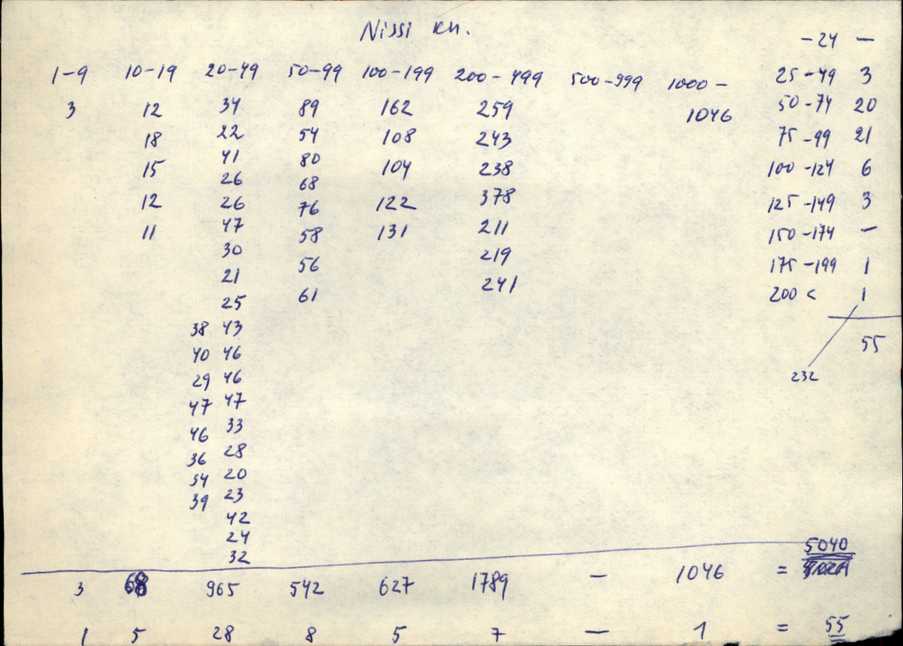 Nissi kn.
-24 —
1-9 10-19 20-49 50-99 100-199 200-499 500-999 1000- 25-49 3
3 12 34 89 162 259 1046 50-74 20
18 22 54 108 243 75-99 21
15 41 80 104 238 100-124 6
26 68
12 26 76 122 378 125-149 3
11 47 58 131 211 150-174 —
30 56 219 175-199 1
21 241
25 61 200 < 1
38 43
40 46 55
29 46 232
47 47
46 33
36 28
34 20
39 23
42
24
32 5040
3 68 965 542 627 1789 — 1046 =
1 5 28 8 5 7 — 1 = 55